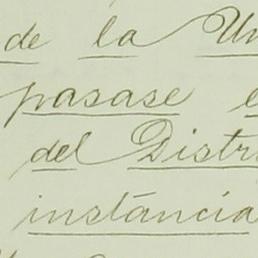 de la Un
pasase e
del Distri
instáncia